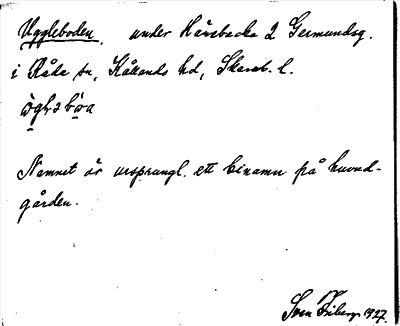 Uggleboden, under Håvbacka 2 Germundsg.
i Råda sn, Kållands hd, Skarab. l.
Namnet är ursprungl. ett binamn på huvud-
gården.
Sven Friberg 1927.